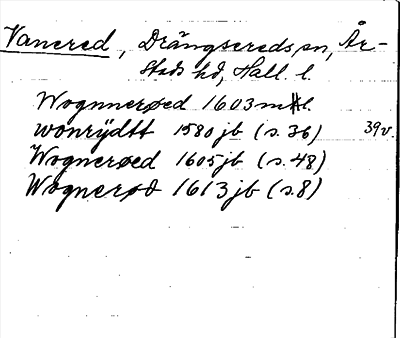 Vanered, Drängsereds sn, År-
stads hd, Hall. l.
Wognnerøed 1603 mtl.
wonrÿdtt 1580 jb (s. 36) 39v.
Wognerøed 1605 jb (s. 48)
Wognerød 1613 jb (s. 8)